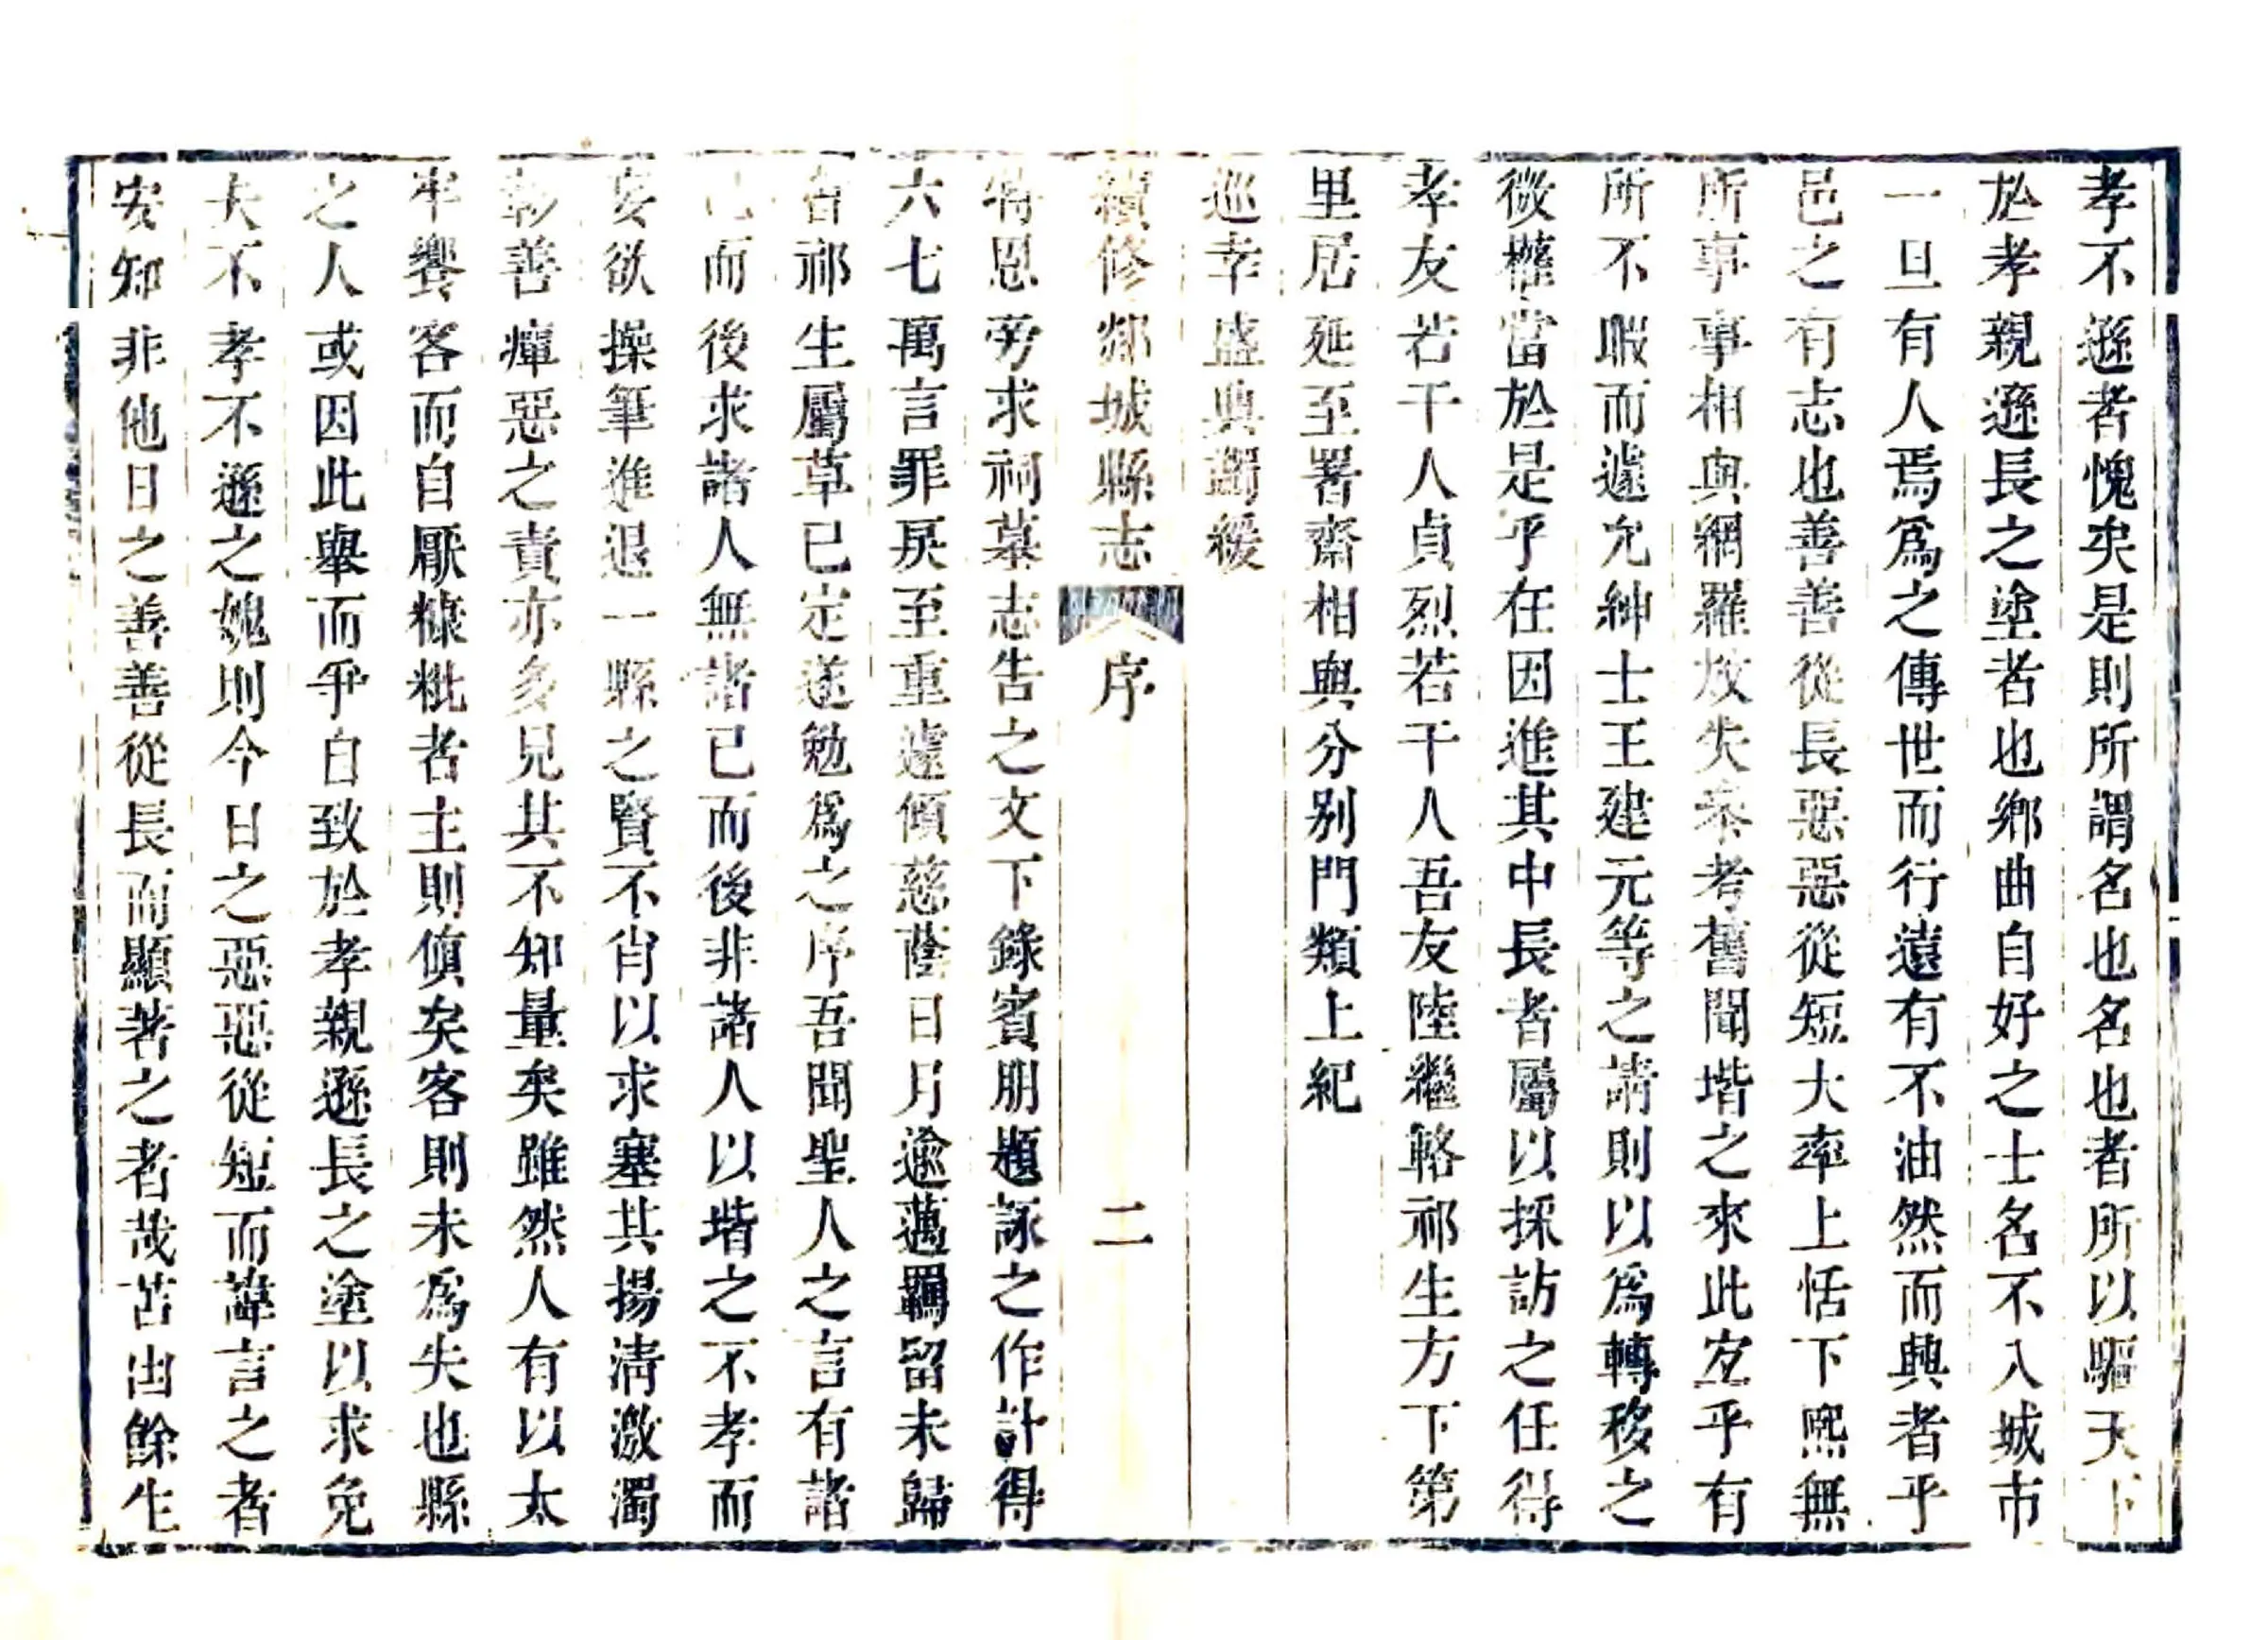 孝不遜者愧矣是則所謂名也名也者所以驅天下
於孝親遜長之塗者也鄉曲自好之士名不入城市
一旦有人焉爲之傳世而行遠有不油然而興者乎
邑之有志也善善從長惡惡從短大率上恬下熈無
所事事相與網羅放失參考舊聞堦之來此宐乎有
所不暇而遽允紳士王建元等之請則以爲轉移之
微權當於是乎在因進其中長者屬以採訪之任得
孝友若干人貞烈若干人吾友陸繼輅祁生方下第
里居延至署齋相與分別門類上紀
巡幸盛典蠲緩
續修郯城縣志 序 二
特恩旁求祠墓志告之文下錄賓朋題詠之作計得
六七萬言罪戾至重遽傾慈蔭日月逾邁羈留未歸
會祁生屬草已定遂勉爲之序吾聞聖人之言有諸
己而後求諸人無諸已而後非諸人以堦之不孝而
妄欲操筆進退一縣之賢不肖以求塞其揚淸激濁
彰善癉惡之責亦多見其不知量矣雖然人有以太
牢饗客而自厭糠粃者主則傎矣客則未爲失也縣
之人或因此舉而爭自致於孝親遜長之塗以求免
夫不孝不遜之媿則今日之惡惡從短而諱言之者
安知非他日之善善從長而顯著之者哉苫出餘生